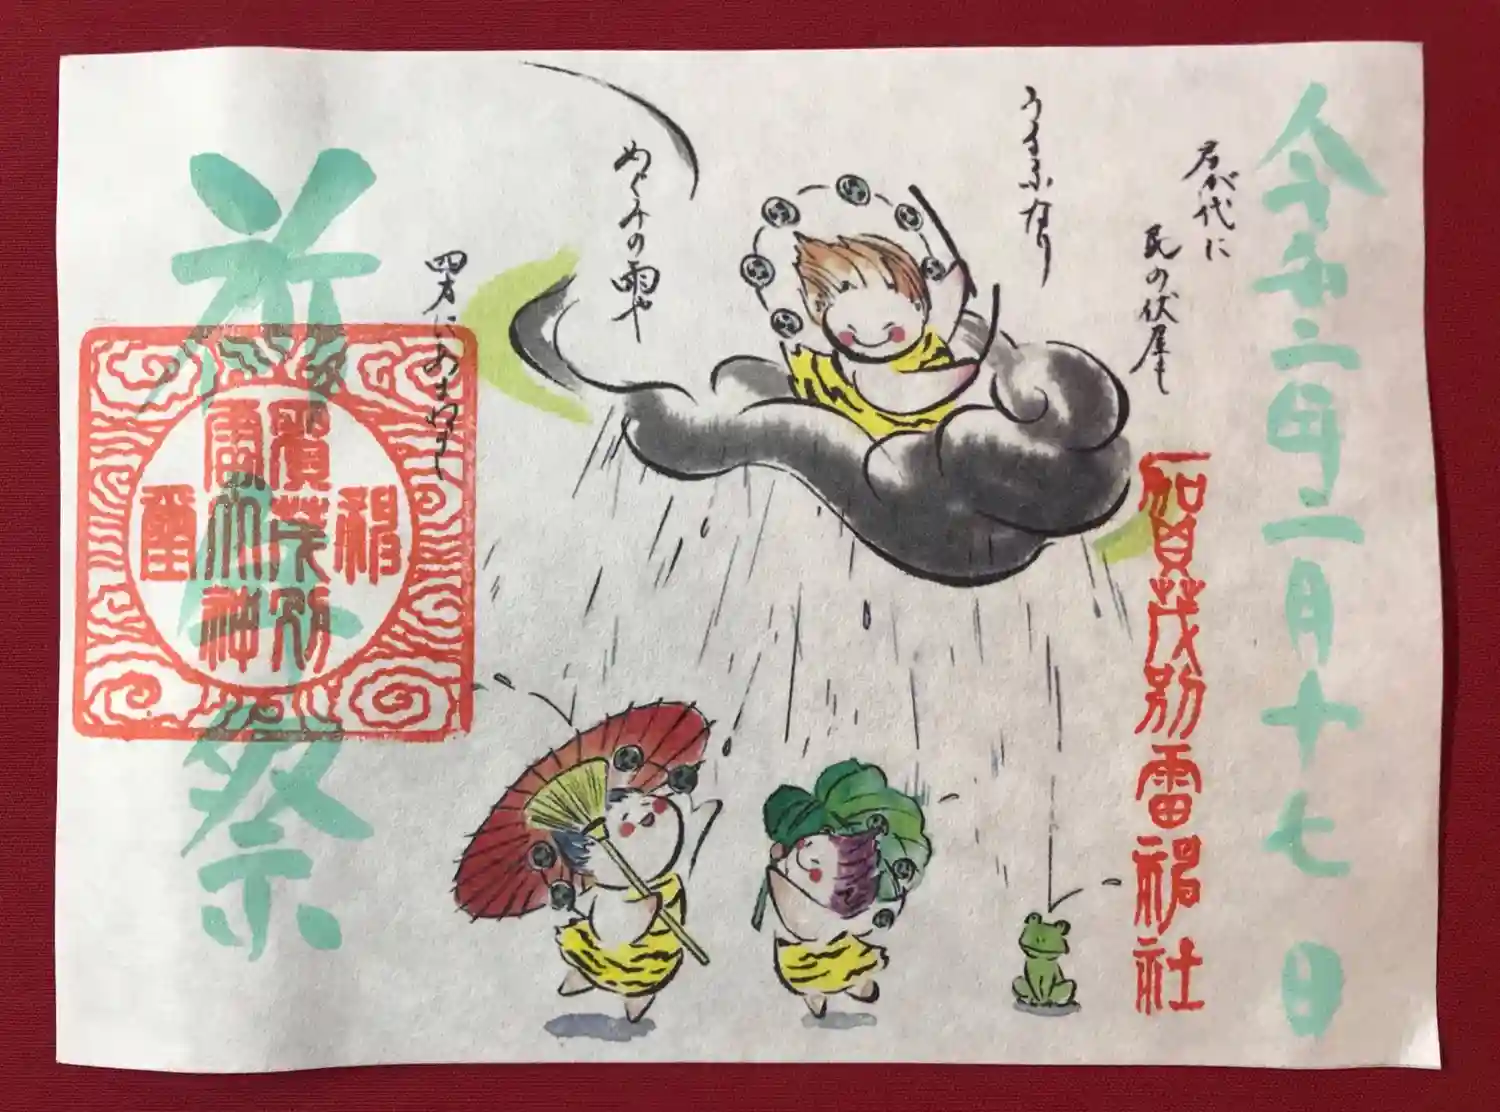 令和二年二月十七日
賀茂別雷神社
君が代に
民の伏屋も
うるふなり
めぐみの雨や
四方にあまねし
祈年祭
神
賀茂別
雷大神
璽